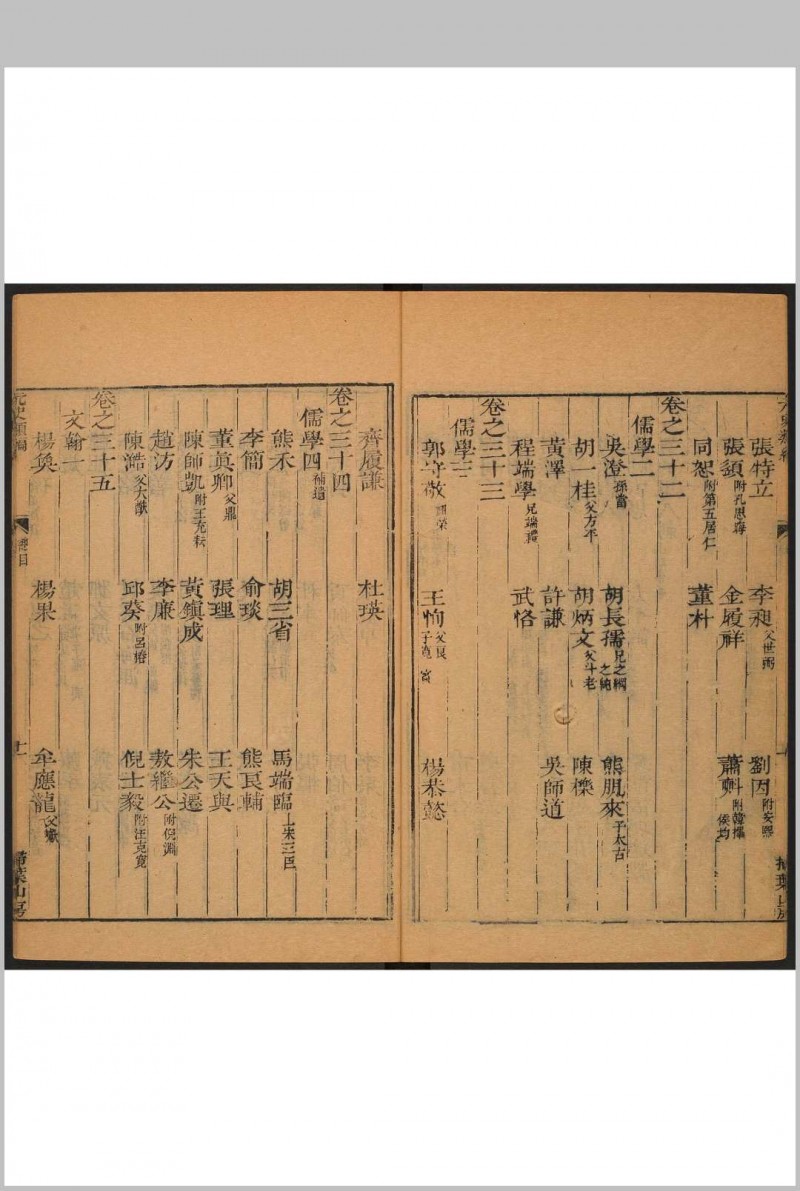 張特立 李昶父世弼 劉因附安熙
張頟附孔思晦 金履祥 蕭㪺附韓擇 侯均
同恕附第五居仁 董朴
卷之三十二
儒學二
吳澄孫當 胡長孺兄之綱 之純 熊朋來子太古
胡一桂父方平 胡炳文父斗老 陳櫟
黃澤 許謙 吳師道
程端學兄端禮 武恪
卷之三十三
儒學三
郭守敬 王恂父良 子寬 賓 楊恭懿
掃葉山房
齊履謙 杜瑛
卷之三十四
儒學四補遺
熊禾 胡三省 馬端臨
李簡 俞琰 熊良輔
董真卿父鼎 張理 王天與
陳師凱附王充耘 黃鎮成 朱公遷
趙汸 李廉 敖繼公附倪淵
陳澔父大猷 邱葵附呂椿 倪士毅附汪克寬
卷之三十五
文翰一
楊奐 楊果 牟應龍父巘
元史類編 總目 十一 掃葉山房